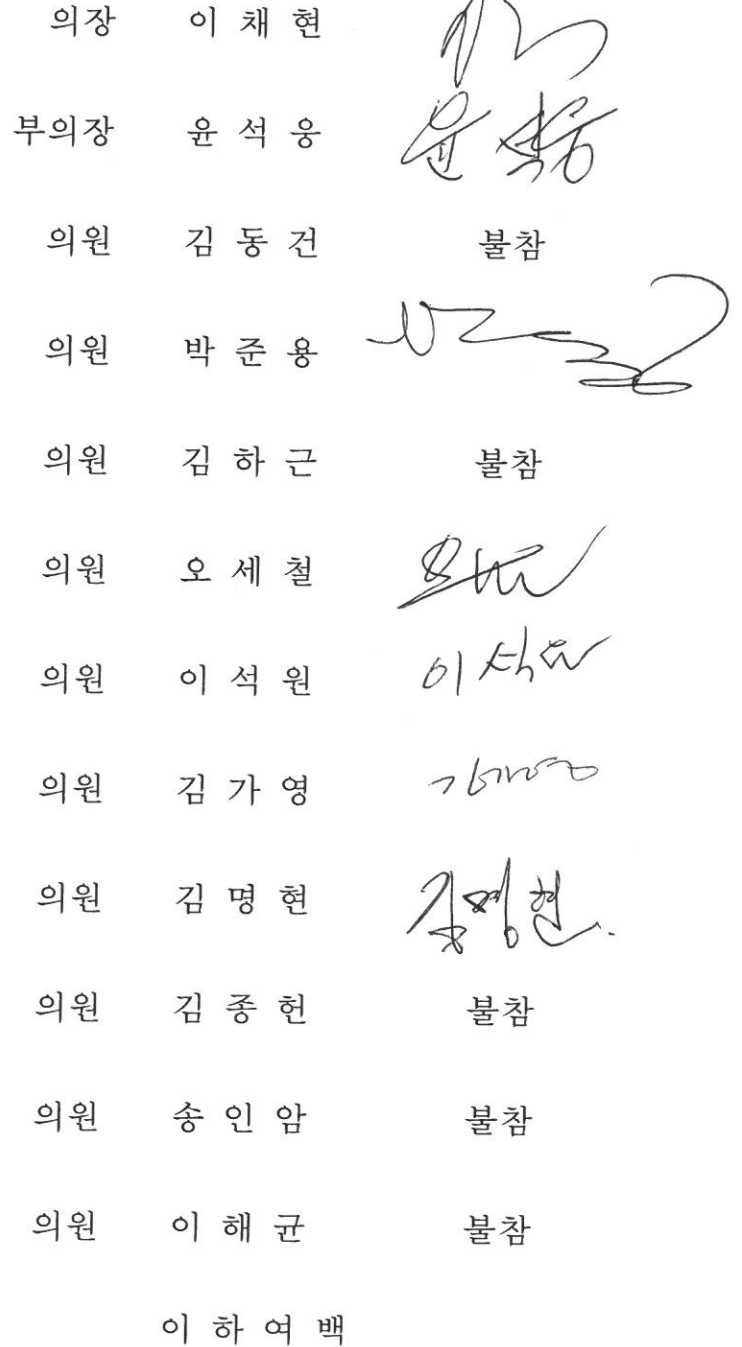 의장 이 채 현
부의장 윤 석 웅 윤석웅
의원 김 동 건 불참
의원 박 준 용
의원 김 하 근 불참
의원 오 세 철
의원 이 석 원 이석원
의원 김 가 영 김가영
의원 김 명 현 김명현.
의원 김 종 헌 불참
의원 송 인 암 불참
의원 이 해 균 불참
이 하 여 백